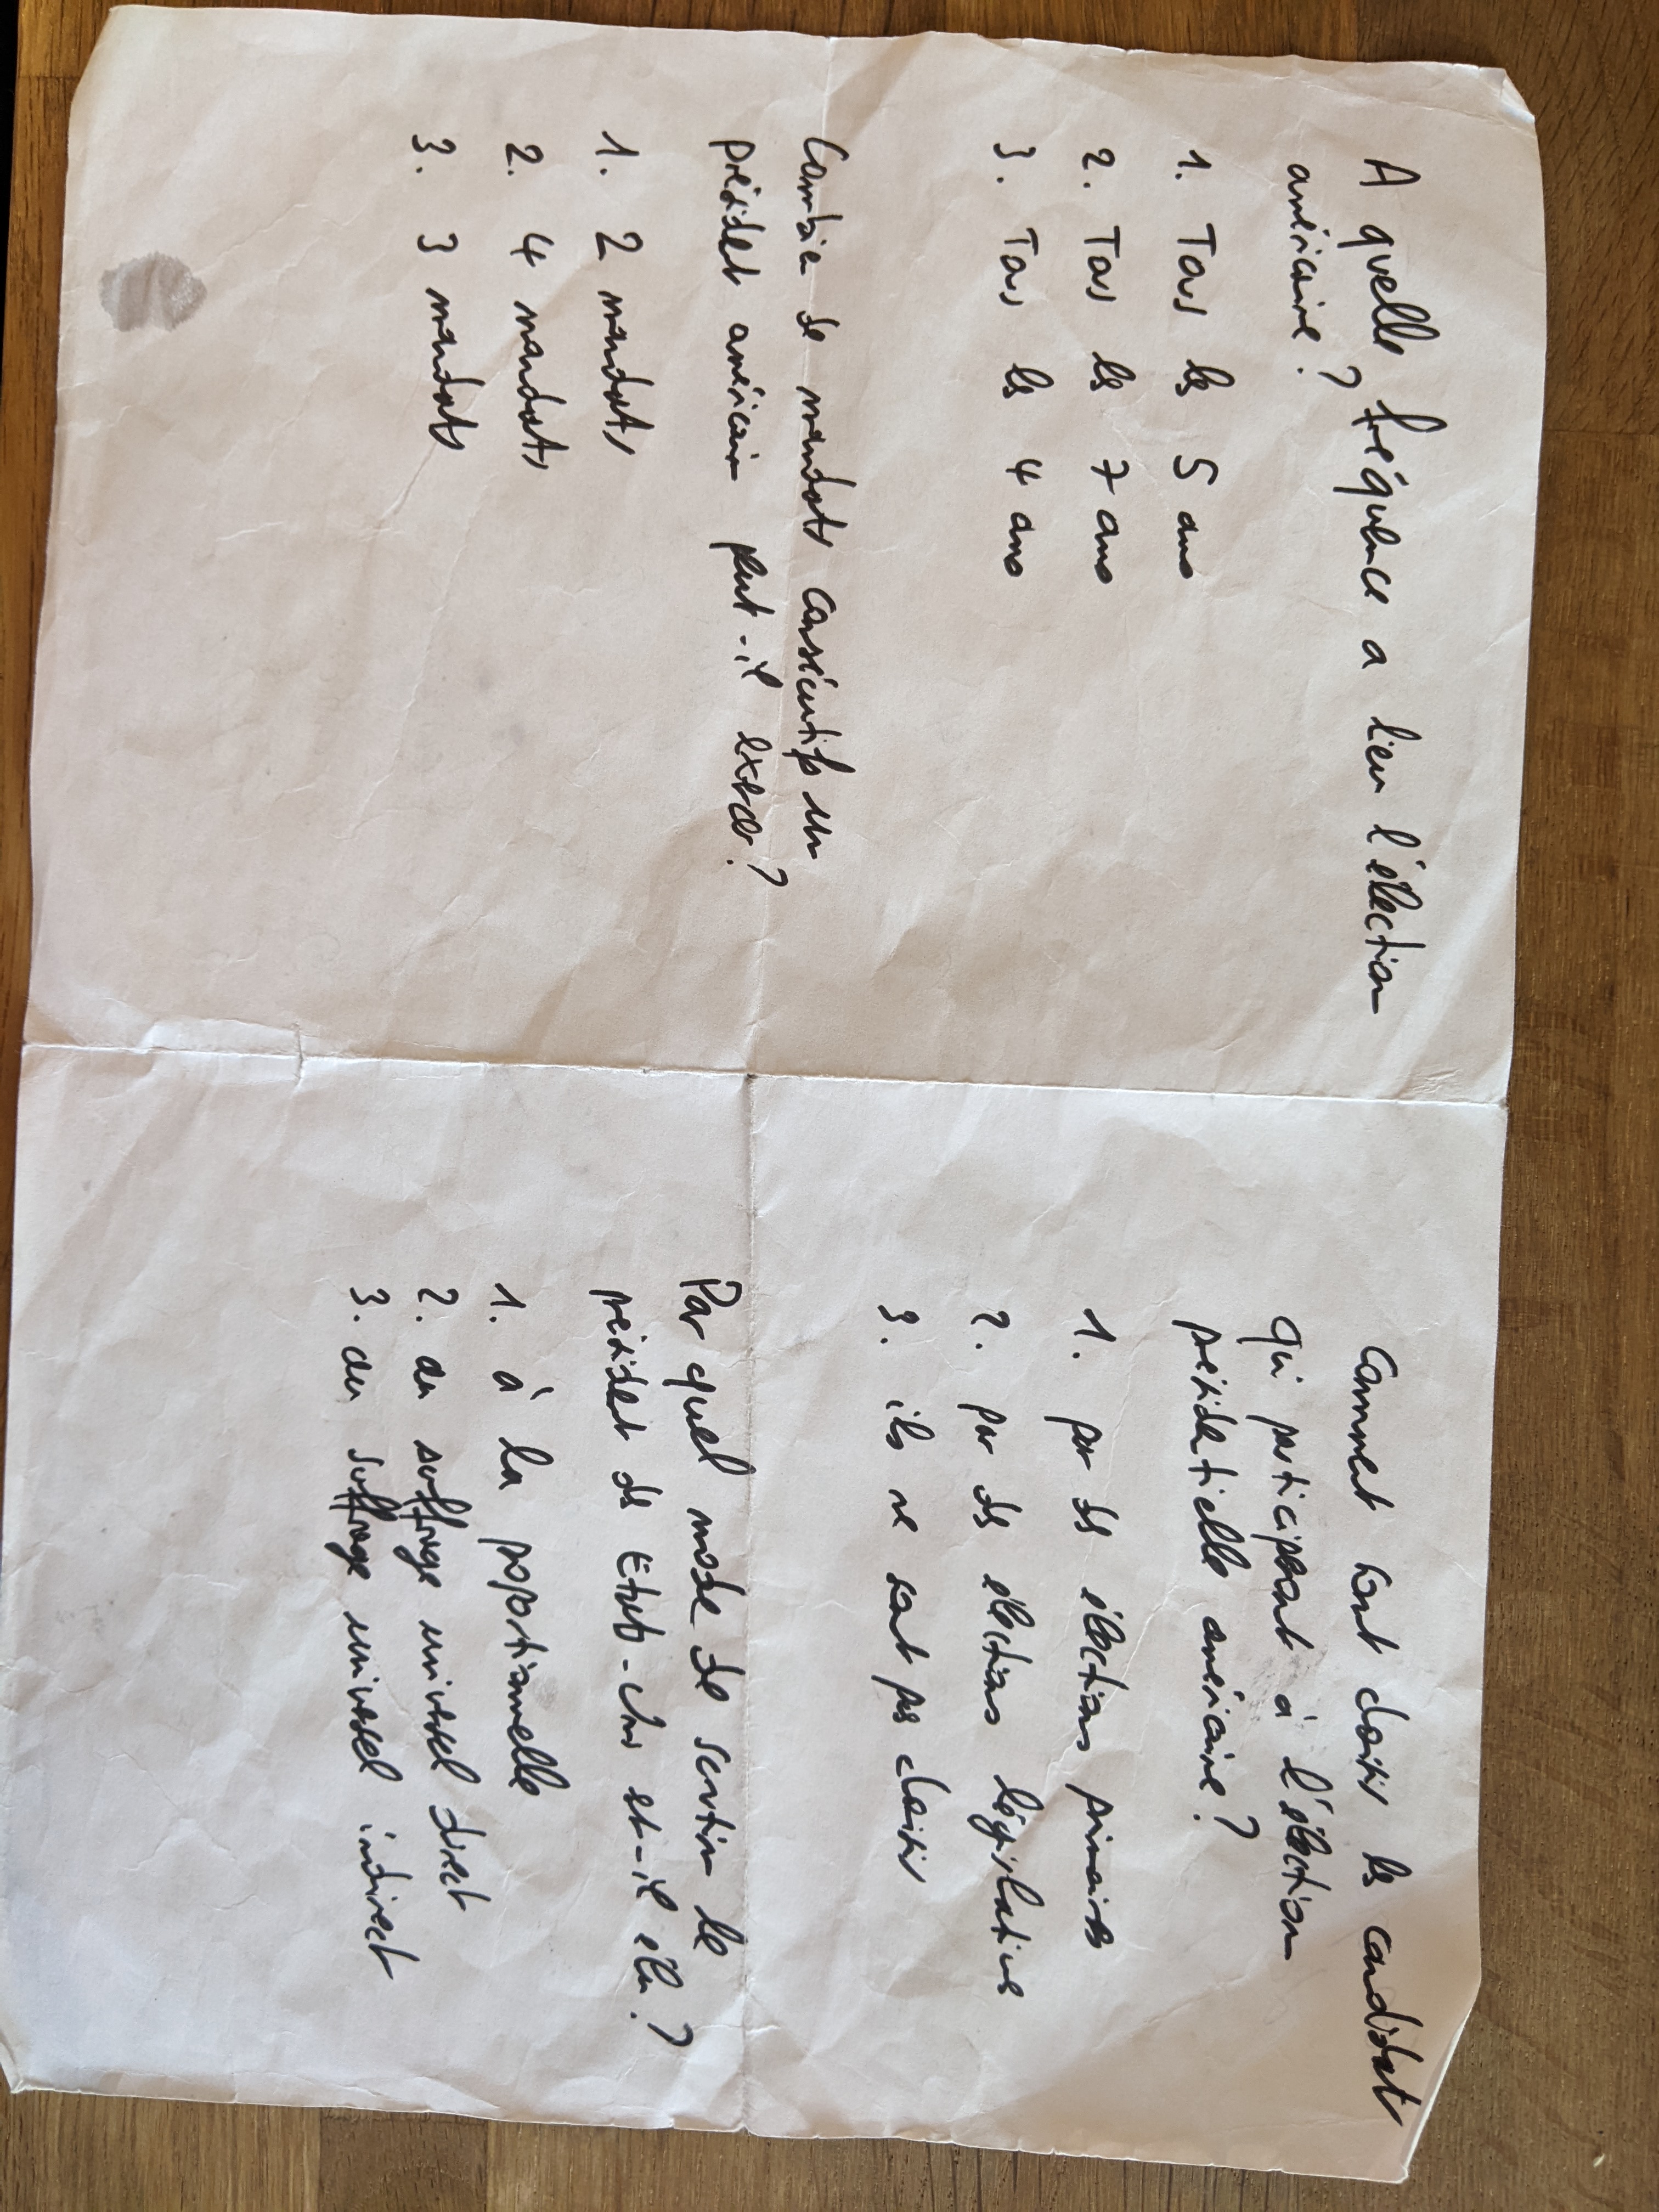 A quelle fréquence a lieu l'élection
américaine ?
1. Tous les 5 ans
2. Tous les 7 ans
3. Tous les 4 ans
Combien de mandats consécutifs un
président américain peut-il exercer ?
1. 2 mandats
2. 4 mandats
3. 3 mandats
Comment sont choisis les candidats
qui participent à l'élection
présidentielle américaine ?
1. par des élections primaires
2. par des élections législatives
3. ils ne sont pas choisis
Par quel mode de scrutin le
président des Etats-Unis est-il élu ?
1. à la proportionnelle
2. au suffrage universel direct
3. au suffrage universel indirect